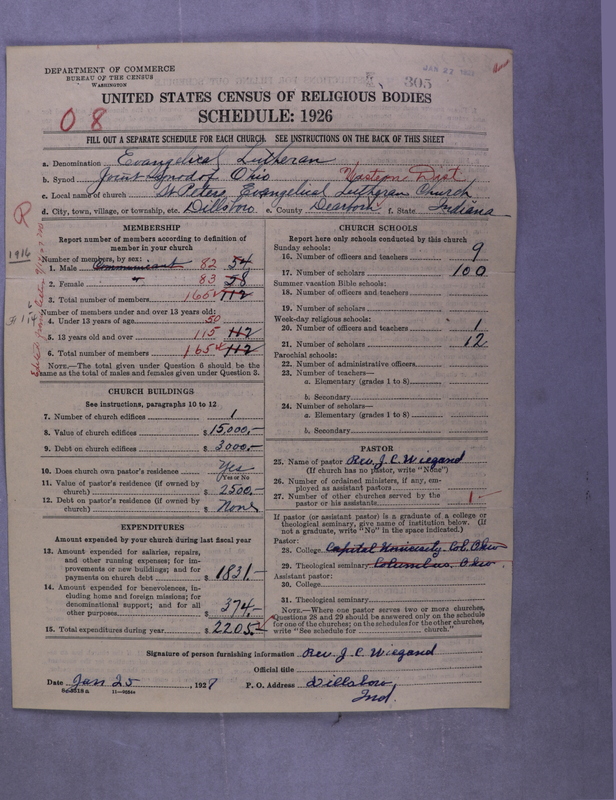 JAN 22
305
DEPARTMENT OF COMMERCE
BUREAU OF THE CENSUS
WASHINGTON
UNITED STATES CENSUS OF RELIGIOUS BODIES
SCHEDULE: 1926
08
FILL OUT A SEPARATE SCHEDULE FOR EACH CHURCH. SEE INSTRUCTIONS ON THE BACK OF THIS SHEET
a. Denomination Evangelical Lutheran
b. Synod Joint Synod of Ohio Western Dist.
c. Local name of church St Peters Evangelical Lutheran Church
d. City, town, village, or township, etc. Dillsboro e. County Dearborn f. State Indiana
1916
MEMBERSHIP
Report number of members according to definition of
member in your church
Number of members, by sex:
1. Male Communicant 82 54
2. Female " 83 58
3. Total number of members 165 112
Number of members under and over 13 years old:
4. Under 13 years of age 50
5. 13 years old and over 115 112
6. Total number of members 165 112
NOTE.—The total given under Question 6 should be the
same as the total of males and females given under Question 3.
CHURCH BUILDINGS
See instructions, paragraphs 10 to 12
7. Number of church edifices 1
8. Value of church edifices $ 15,000,-
9. Debt on church edifices $ 3000,-
10. Does church own pastor's residence Yes
(Yes or No)
11. Value of pastor's residence (if owned by
church) $ 2500,-
12. Debt on pastor's residence (if owned by
church) $ None
EXPENDITURES
Amount expended by your church during last fiscal year
13. Amount expended for salaries, repairs,
and other running expenses; for im-
provements or new buildings; and for
payments on church debt $ 1831.-
14. Amount expended for benevolences, in-
cluding home and foreign missions; for
denominational support; and for all
other purposes $ 374,-
15. Total expenditures during year $ 2205.-
CHURCH SCHOOLS
Report here only schools conducted by this church
Sunday schools:
16. Number of officers and teachers 9
17. Number of scholars 100
Summer vacation Bible schools:
18. Number of officers and teachers
19. Number of scholars
Week-day religious schools:
20. Number of officers and teachers 1
21. Number of scholars 12
Parochial schools:
22. Number of administrative officers
23. Number of teachers—
a. Elementary (grades 1 to 8)
b. Secondary
24. Number of scholars—
a. Elementary (grades 1 to 8)
b. Secondary
PASTOR
25. Name of pastor Rev. J. C. Wiegand
(If church has no pastor, write "None")
26. Number of ordained ministers, if any, em-
ployed as assistant pastors
27. Number of other churches served by the
pastor or his assistants 1
If pastor (or assistant pastor) is a graduate of a college or
theological seminary, give name of institution below. (If
not a graduate, write "No" in the space indicated.)
Pastor:
28. College Capital University Col. Ohio
29. Theological seminary Columbus, Ohio
Assistant pastor:
30. College
31. Theological seminary
NOTE.—Where one pastor serves two or more churches,
questions 28 and 29 should be answered only on the schedule
for one of the churches; on the schedules for the other churches,
write "See schedule for church."
Signature of person furnishing information Rev. J. C. Wiegand
Official title
Date Jan 25, 1927 P. O. Address Dillsboro,
Ind.